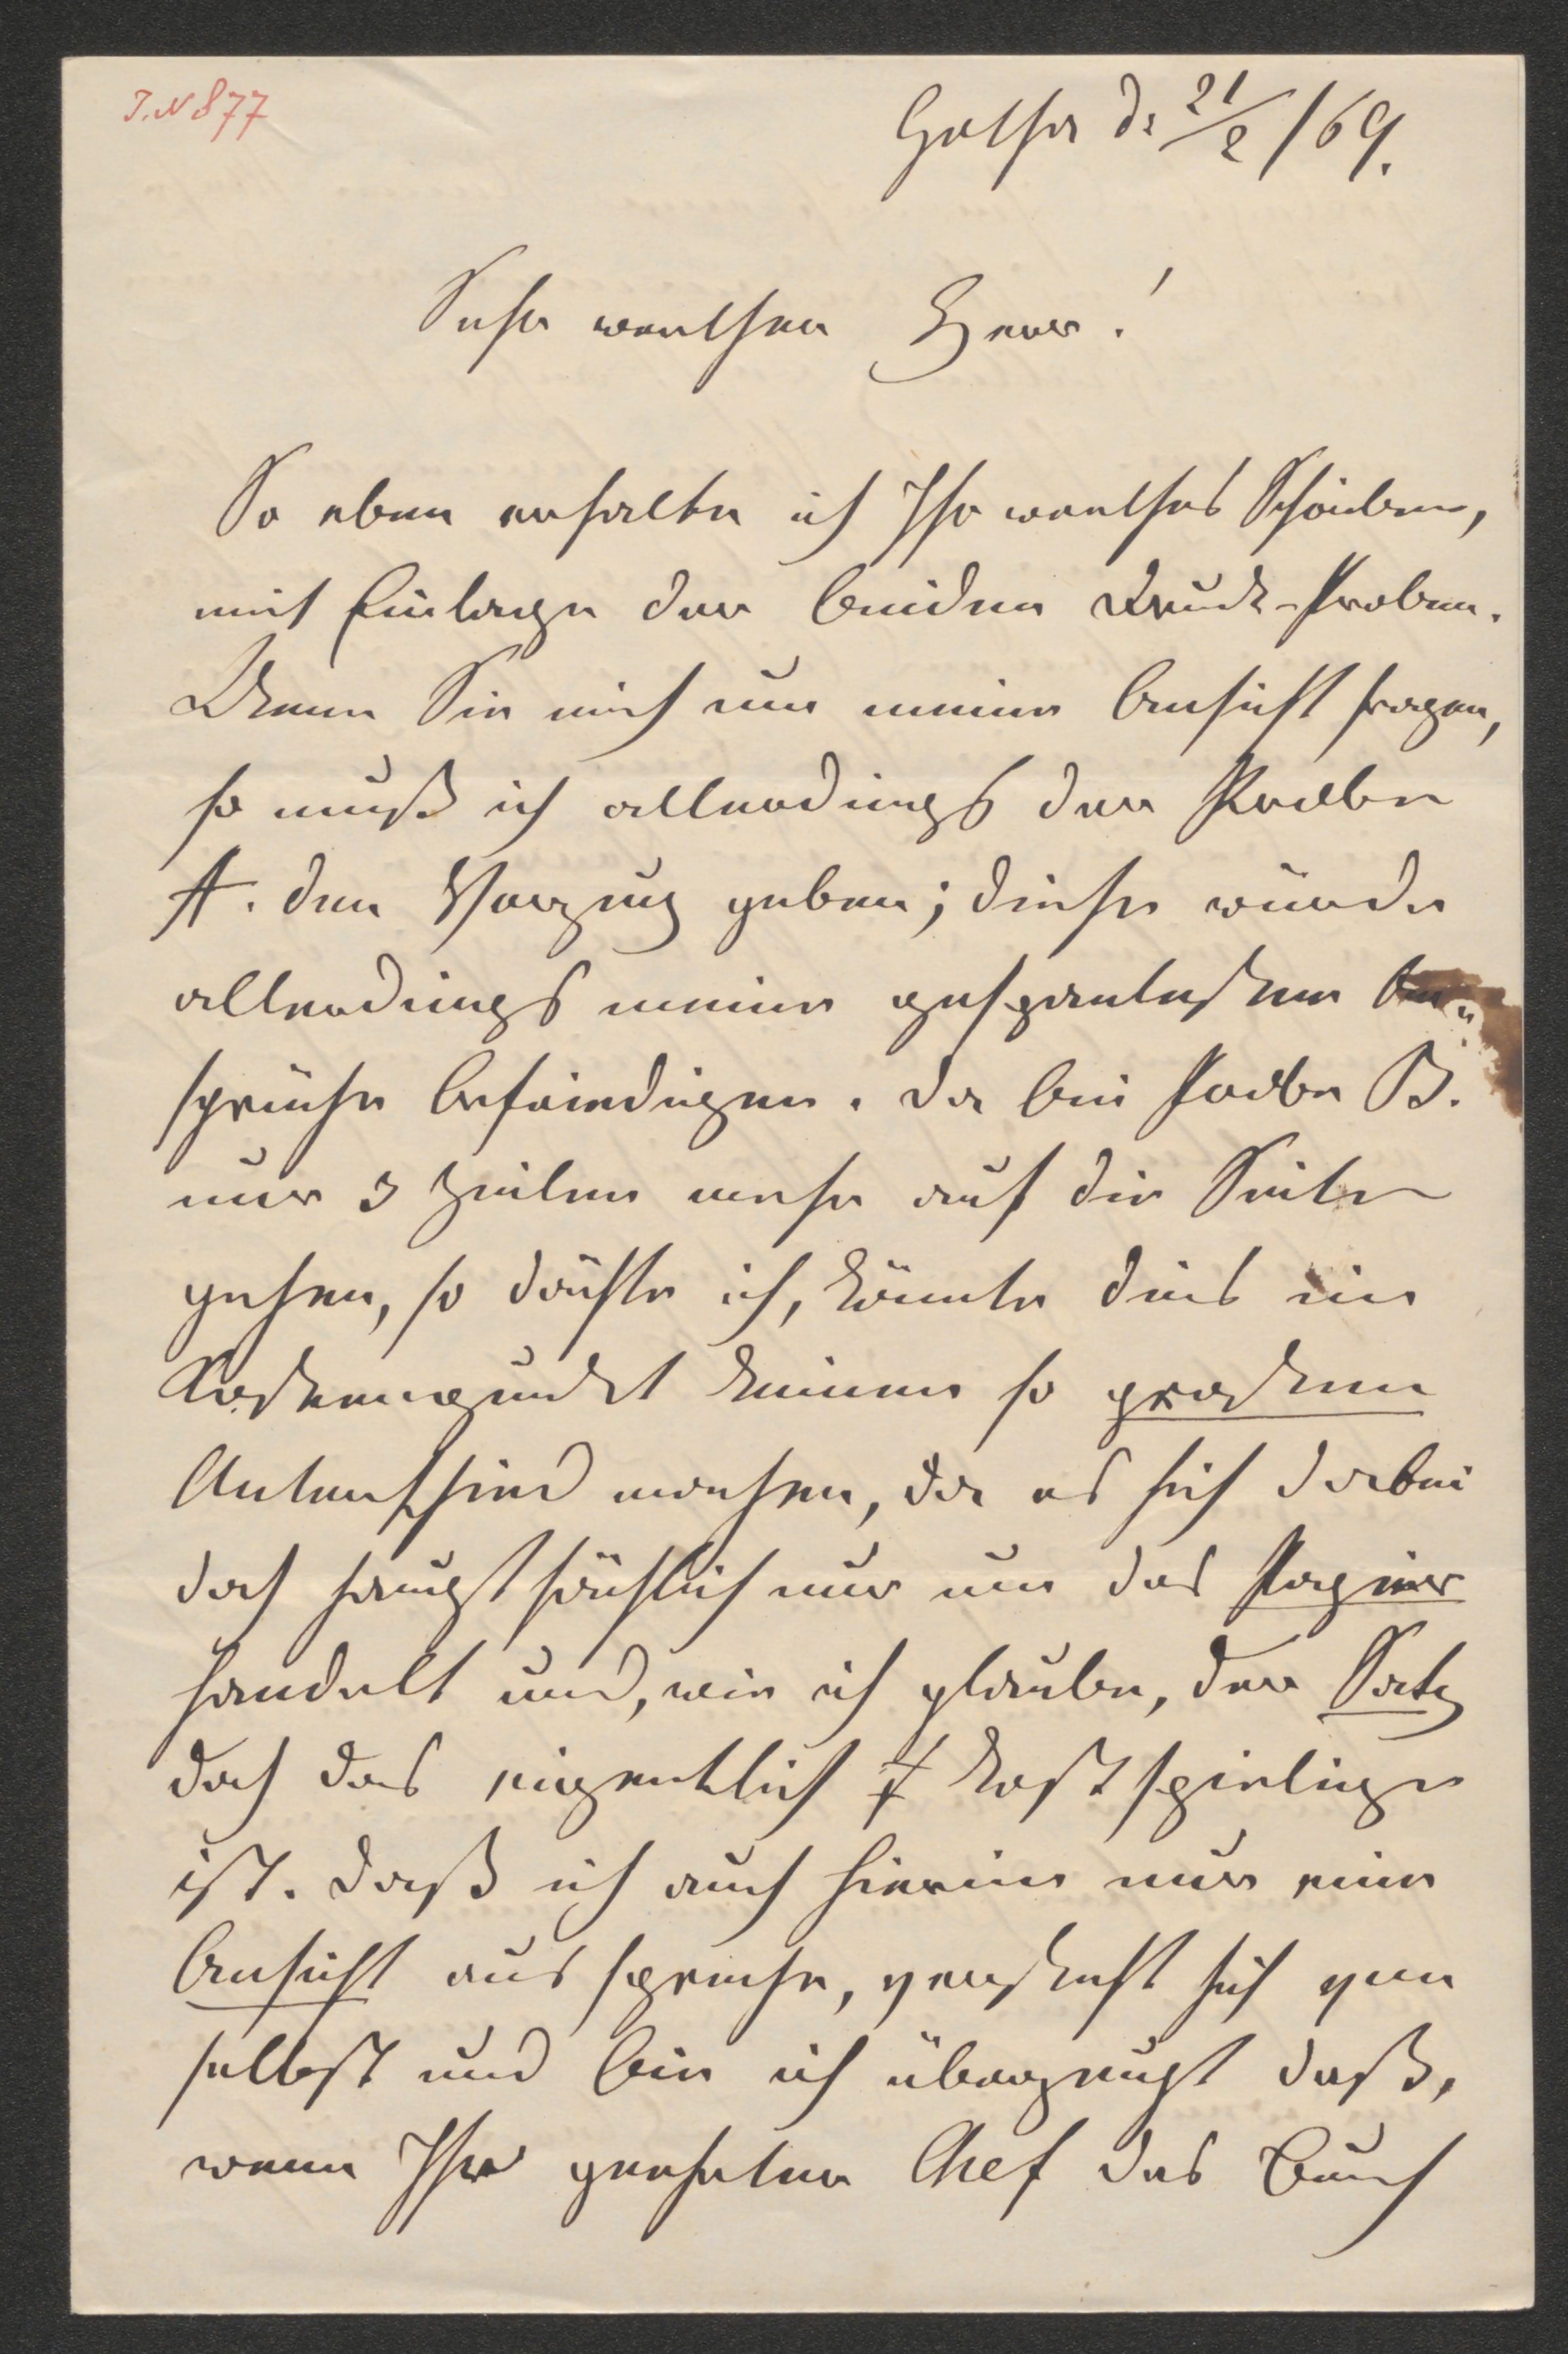 J.N 877
Gotha d: 21/2 /69.
Sehr werther Herr!
So eben erhalte ich Ihr werthes Schreiben,
mit Einlage der beiden Druck-Proben.
Wenn Sie mich um meine Ansicht fragen,
so muß ich allerdings der Probe
A. den Vorzug geben; diese würde
allerdings meine An„
sprüche befriedigen. Da bei Probe B.
nur 3 Zeilen mehr auf die Seite
gehen, so dächte ich, könnte dies im
Kostenpunkt keinen so großen
Unterschied machen, da es sich dabei
doch hauptsächlich nur um das Papier
handelt und, wie ich glaube, der Satz
doch das eigentlich kostspielige
ist. Daß ich auch hierin nur eine
Ansicht ausspreche, versteht sich von
selbst und bin ich überzeugt daß,
wenn Ihr geehrter Chef das Buch